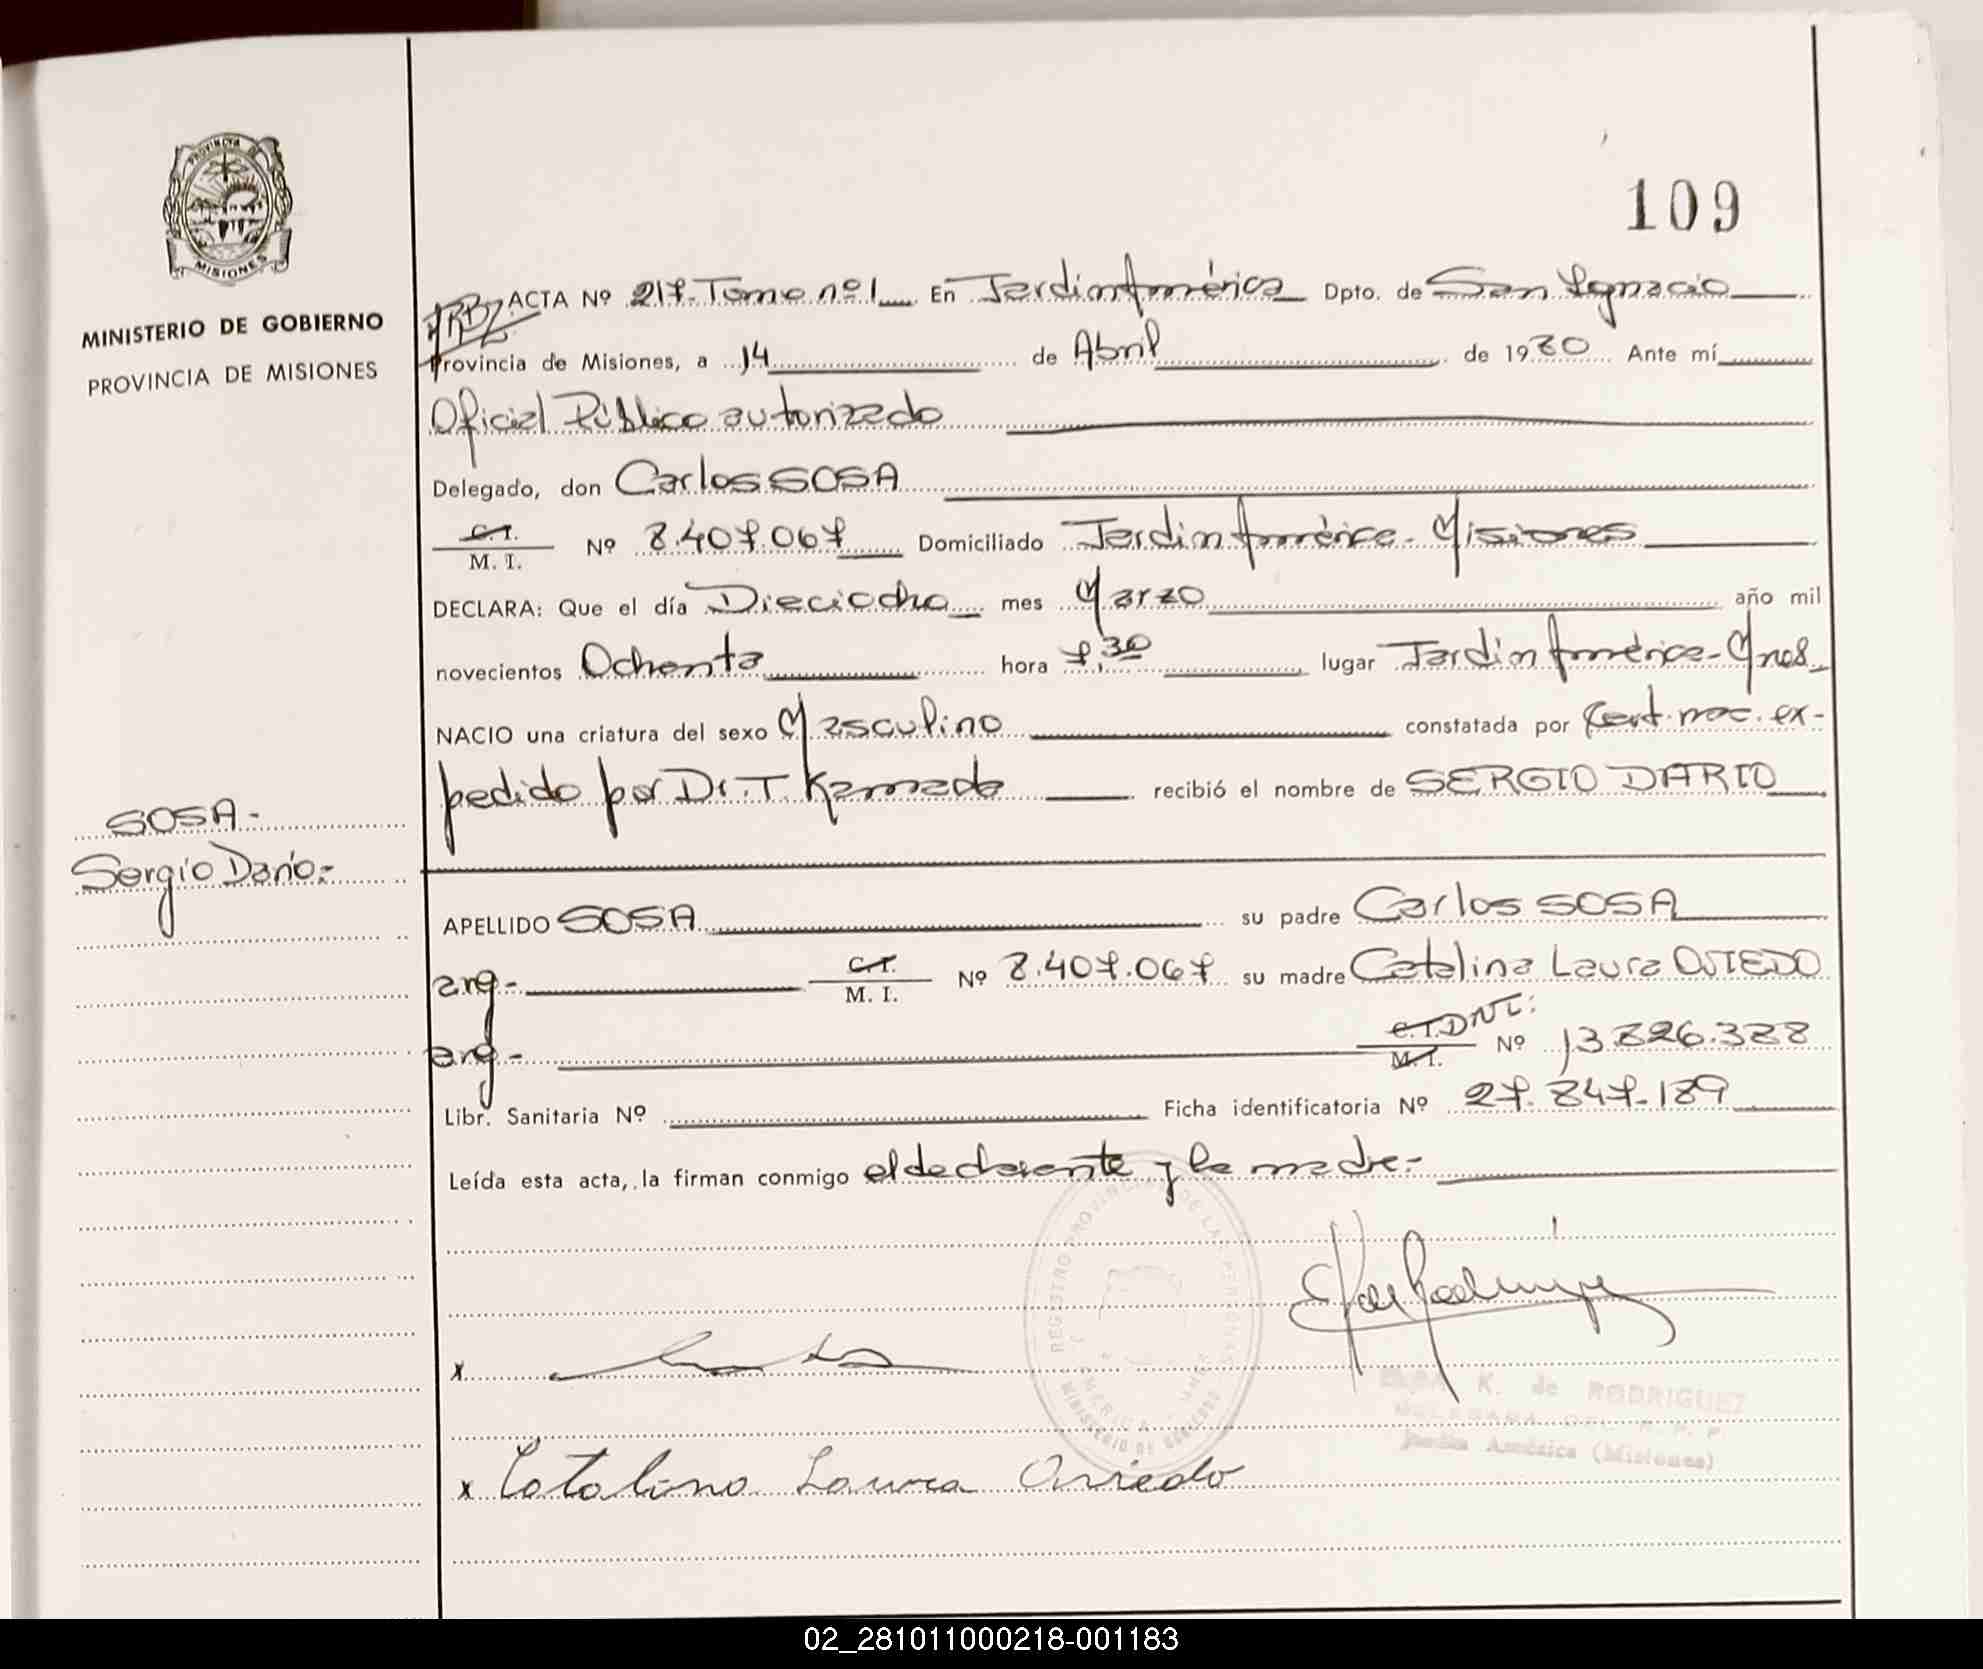 109
PROVINCIA DE
MISIONES
MINISTERIO DE GOBIERNO
PROVINCIA DE MISIONES
ACTA Nº 217. Tomo nº 1 En Jardin América Dpto. de San Ignacio
Provincia de Misiones, a 14 de Abril de 1980 Ante mí
Oficial Público autorizado
Delegado, don Carlos SOSA
C.I.
M. I. Nº 8.407.067 Domiciliado Jardin América - Misiones
DECLARA: Que el día Dieciocho mes Marzo año mil
novecientos Ochenta hora 7,30 lugar Jardin América - Mnes.
NACIO una criatura del sexo Masculino constatada por Cert. nac. ex-
pedido por Dr. T. Kamada recibió el nombre de SERGIO DARIO
SOSA-
Sergio Darío:
APELLIDO SOSA su padre Carlos SOSA
arg- C.I.
M. I. Nº 8.407.067 su madre Catalina Laura OVIEDO
arg- C.I. DNI:
M. I. Nº 13.826.388
Libr. Sanitaria Nº Ficha identificatoria Nº 27.847.189
Leída esta acta, la firman conmigo el declarante y la madre.-
REGISTRO PROVINCIAL DE LAS PERSONAS
MINISTERIO DE GOBIERNO
x
K. de RODRIGUEZ
DELEGADA DEL R. P. P.
Jardín América (Misiones)
x Catalina Laura Oviedo
02_281011000218-001183